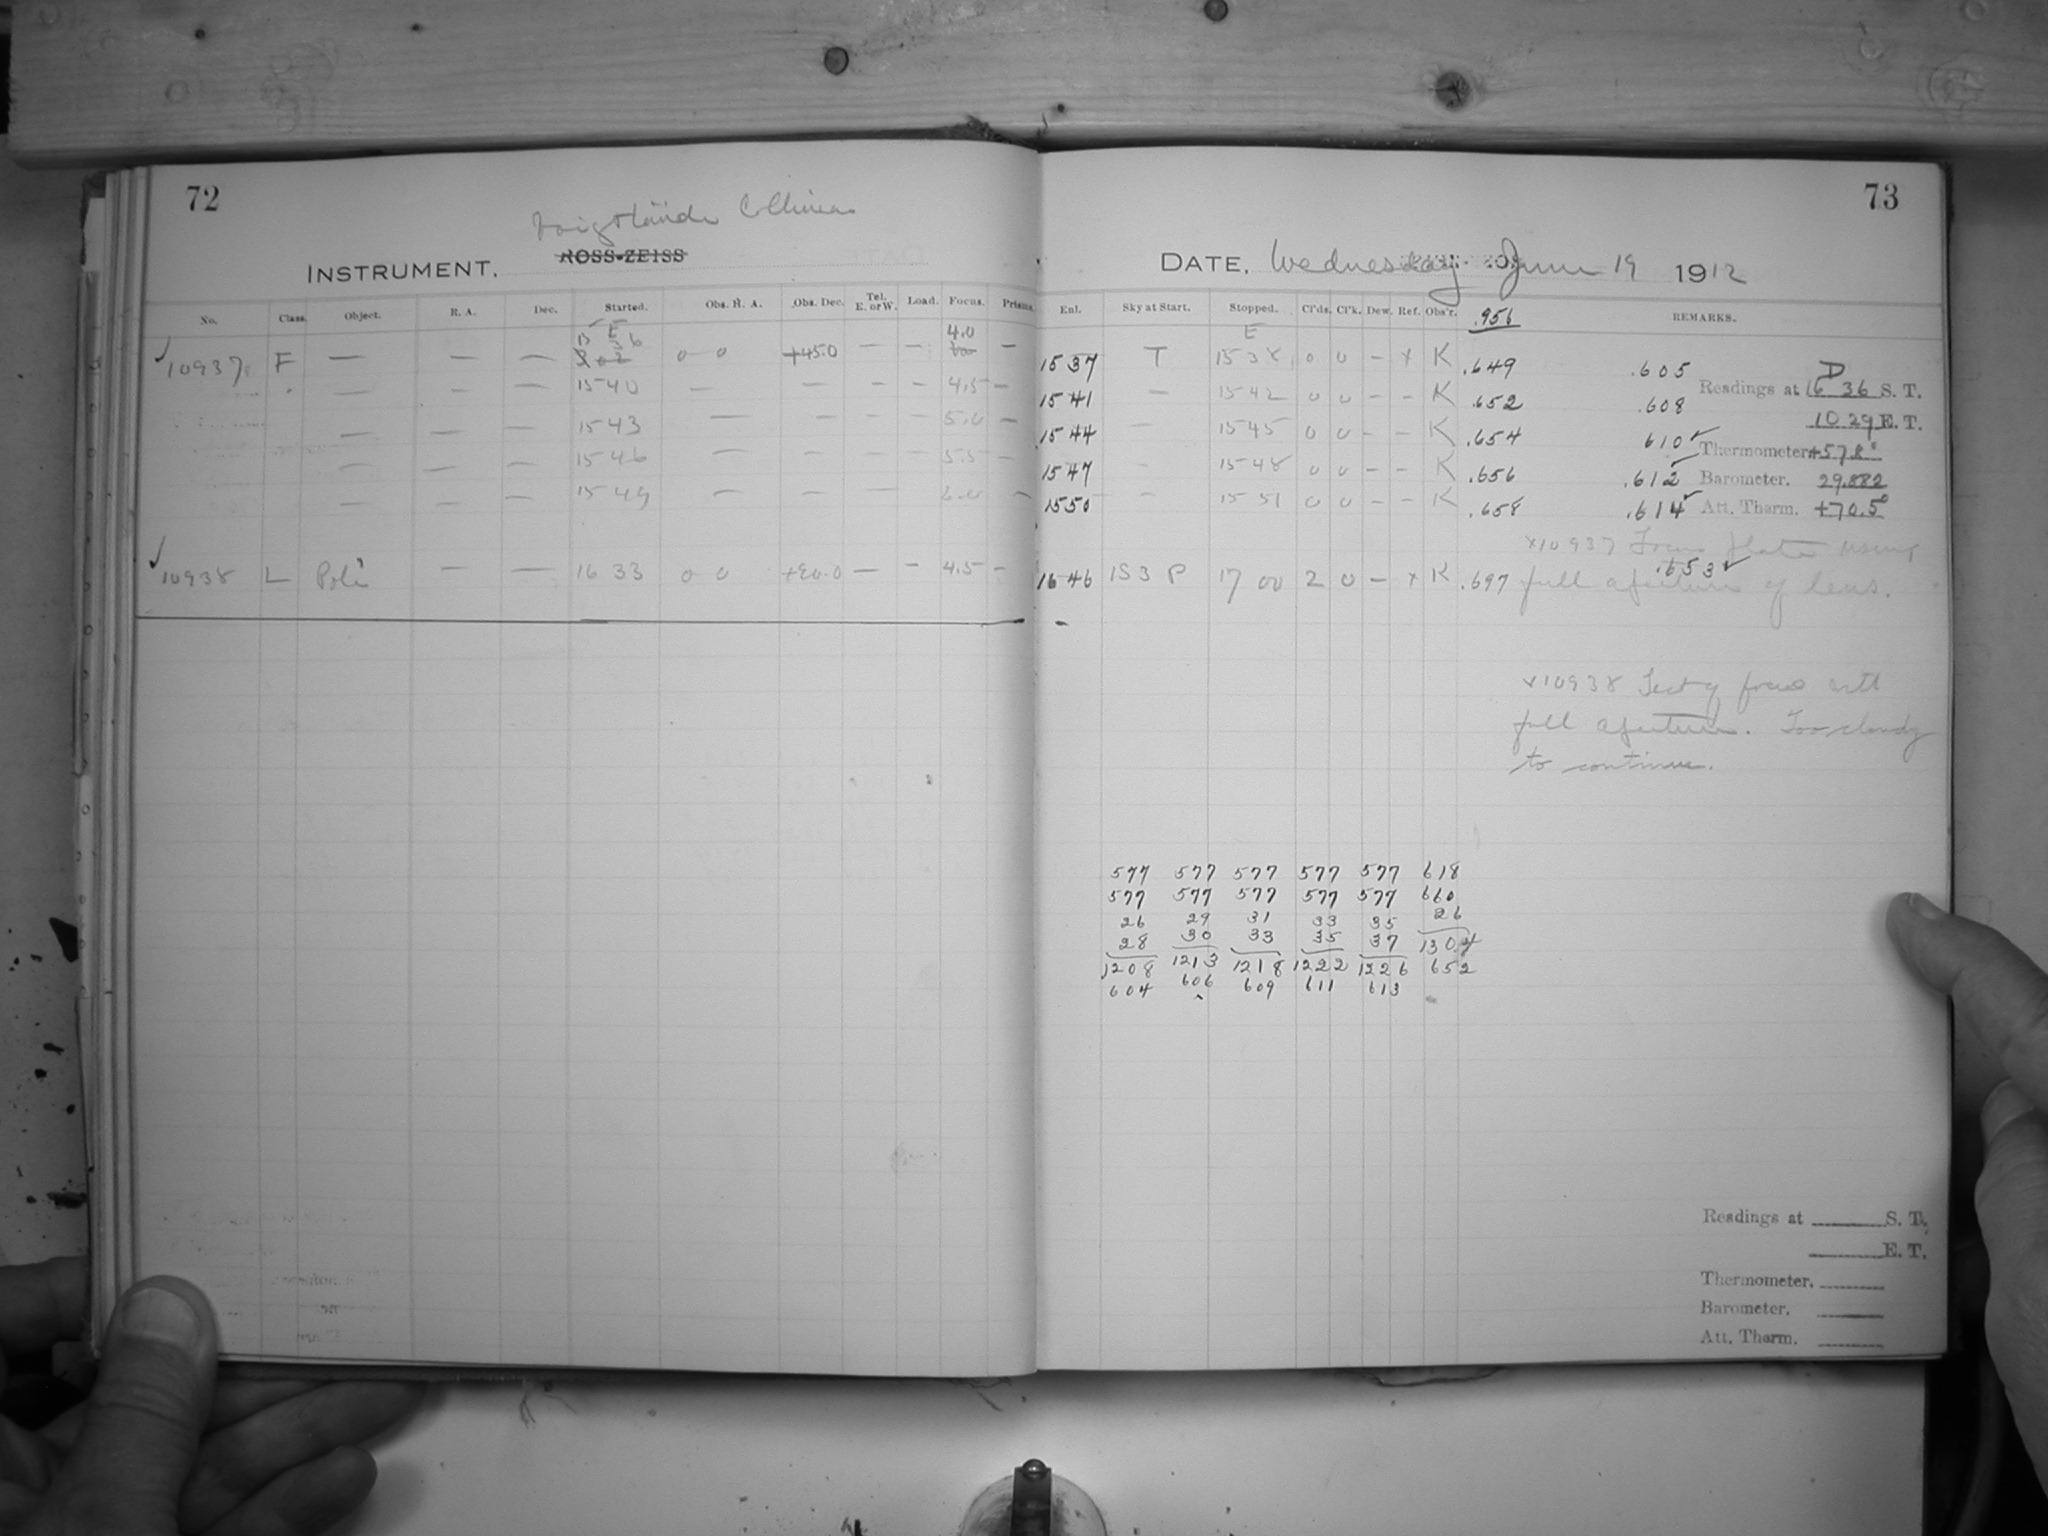 72
Voigtländer Collinear
INSTRUMENT. ROSS-ZEISS
No. Class. Object. R. A. Dec. Started. Obs. H. A. Obs. Dec. Tel. E. or W. Load. Focus. Prisms.
10937 F — — — E 15 36 0 0 +45.0 — — 4.0 —
— — — 15 40 — — — — 4.5 —
— — — 15 43 — — — — 5.0 —
— — — 15 46 — — — — 5.5 —
— — — 15 49 — — — 6.0 —
10938 L Pole — — 16 33 0 0 +90.0 — — 4.5 —
73
DATE, Wednesday June 19 1912
Enl. Sky at Start. Stopped. Cl'ds. Cl'k. Dew. Ref. Obs'r. .956 REMARKS.
15 37 T E 15 38 0 0 — x K .649 .605
15 41 — 15 42 0 0 — — K .652 .608
15 44 — 15 45 0 0 — — K .654 610 ✓
15 47 — 15 48 0 0 — — K .656 .612 ✓
15 50 — 15 51 0 0 — x K .658 .614 ✓
16 46 1S 3 P 17 00 2 0 — x K .697 .653 ✓
D
Readings at 16 36 S. T.
10 29 E. T.
Thermometer +57.8°
Barometer. 29.882
Att. Tharm. +70.5°
x10937 Focus plate using
full aperture of lens.
x10938 Test of focus with
full aperture. Too cloudy
to continue.
577 577 577 577 577 618
577 577 577 577 577 660
26 29 31 33 35 26
28 30 33 35 37 1304
1208 1213 1218 1222 1226 652
604 606 609 611 613
Readings at S. T.
E. T.
Thermometer.
Barometer.
Att. Tharm.